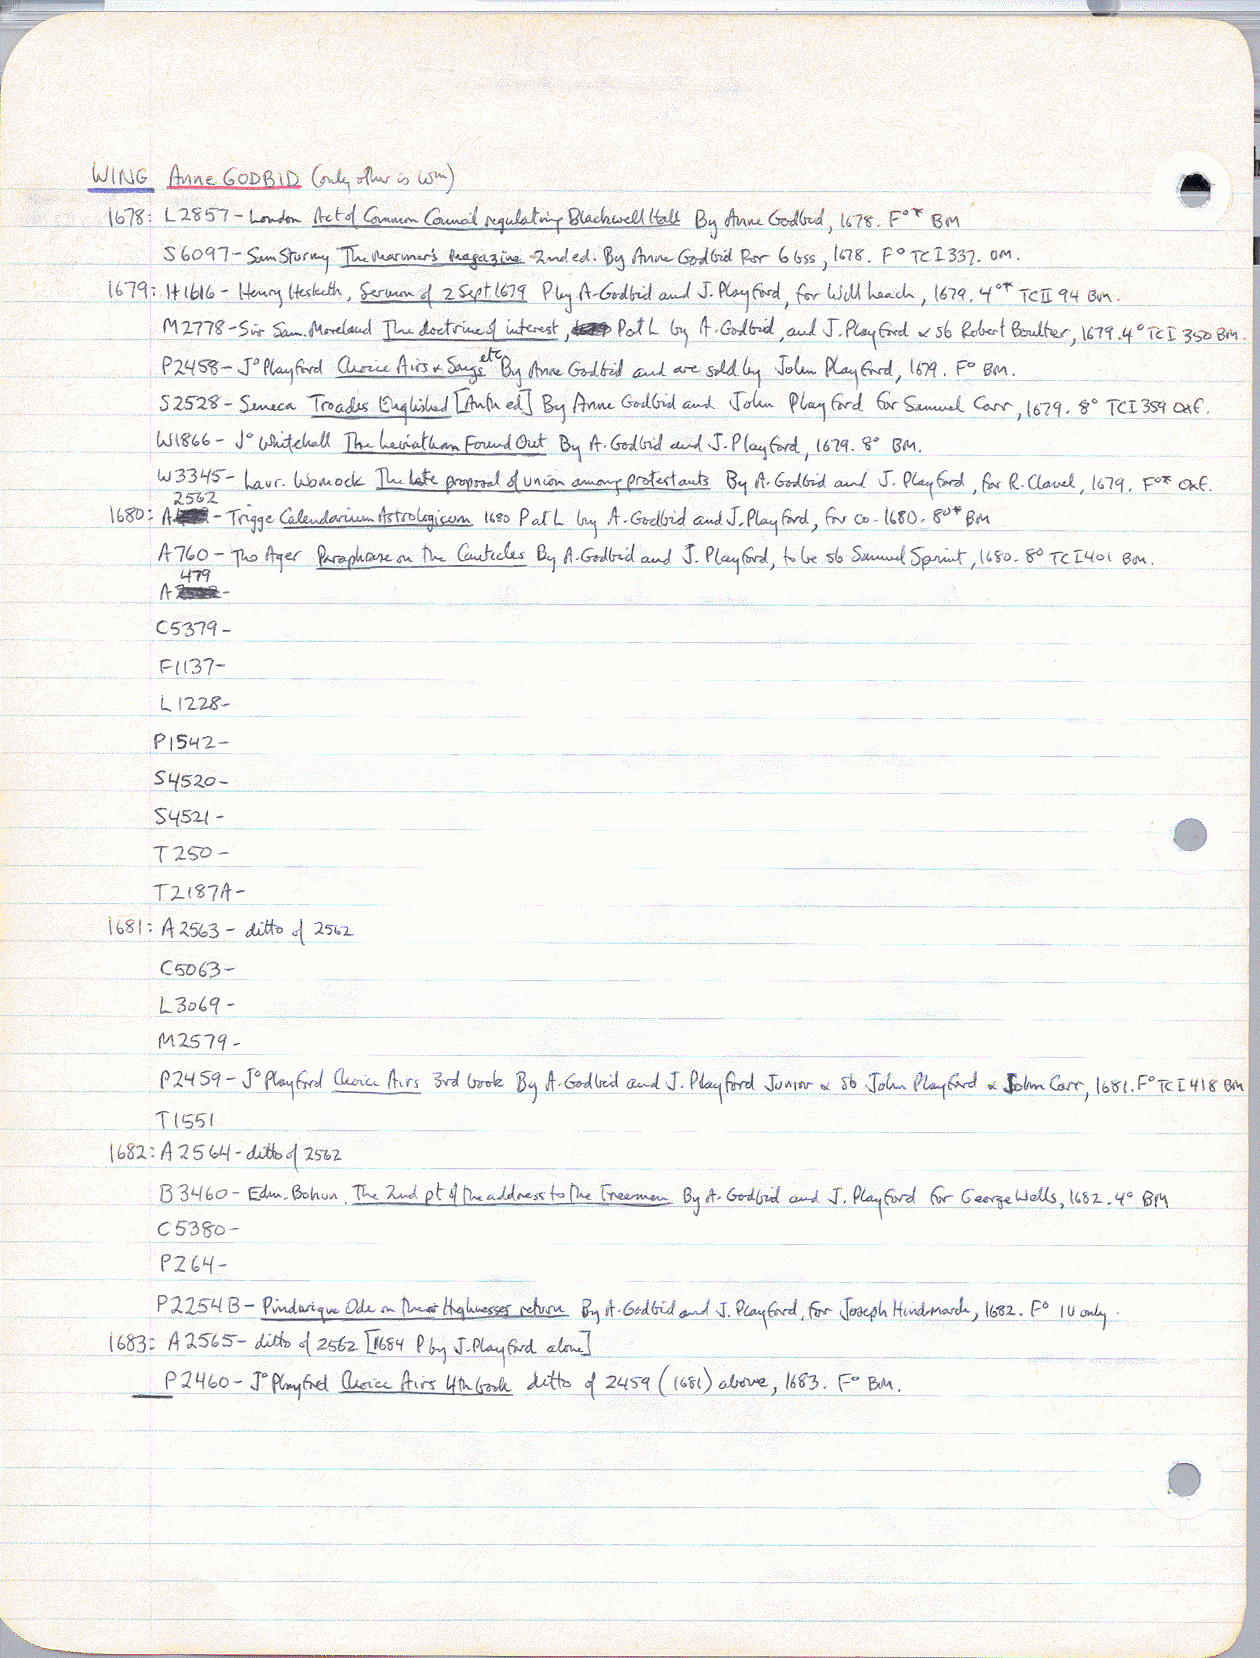 WING Anne GODBID (only other is Wm)
1678: L2857 - London Act of Common Council regulating Blackwell Hall By Anne Godbid, 1678. F°* BM
S6097 - Sam Sturmy The Mariner's Magazine 2nd ed. By Anne Godbid for 6 bss, 1678. F° TCI 337. OM.
1679: H1616 - Henry Hesketh, Sermon of 2 Sept 1679 P by A. Godbid and J. Playford, for Will Leach, 1679. 4°* TCII 94 BM.
M2778 - Sir Sam. Moreland The doctrine of interest, P at L by A. Godbid, and J. Playford & sb Robert Boulter, 1679. 4° TCI 350 BM.
P2458 - J° Playford Choice Airs & Songs etc By Anne Godbid and are sold by John Playford, 1679. F° BM.
S2528 - Seneca Troades Englished [Anfn ed] By Anne Godbid and John Playford for Samuel Carr, 1679. 8° TCI 359 Oxf.
W1866 - J° Whitehall The Leviathan Found Out By A. Godbid and J. Playford, 1679. 8° BM.
W3345 - Laur. Womock The late proposal of union among protestants By A. Godbid and J. Playford, for R. Clavel, 1679. F°* Oxf.
2562
1680: A - Trigge Calendarium Astrologicum 1680 P at L by A. Godbid and J. Playford, for co. 1680. 8°* BM
A760 - Tho Ager Paraphrase on the Canticles By A. Godbid and J. Playford, to be sb Samuel Sprint, 1680. 8° TCI 401 BM.
479
A -
C5379 -
F1137 -
L1228 -
P1542 -
S4520 -
S4521 -
T250 -
T2187A -
1681: A2563 - ditto of 2562
C5063 -
L3069 -
M2579 -
P2459 - J° Playford Choice Airs 3rd book By A. Godbid and J. Playford Junior & sb John Playford & John Carr, 1681. F° TCI 418 BM
T1551
1682: A2564 - ditto of 2562
B3460 - Edm. Bohun. The 2nd pt of the address to the Freemen By A. Godbid and J. Playford for George Wells, 1682. 4° BM
C5380 -
P264 -
P2254B - Pindarique Ode on their Highnesses return By A. Godbid and J. Playford, for Joseph Hindmarch, 1682. F° IU only.
1683: A2565 - ditto of 2562 [1684 P by J. Playford alone]
P2460 - J° Playford Choice Airs 4th book ditto of 2459 (1681) above, 1683. F° BM.